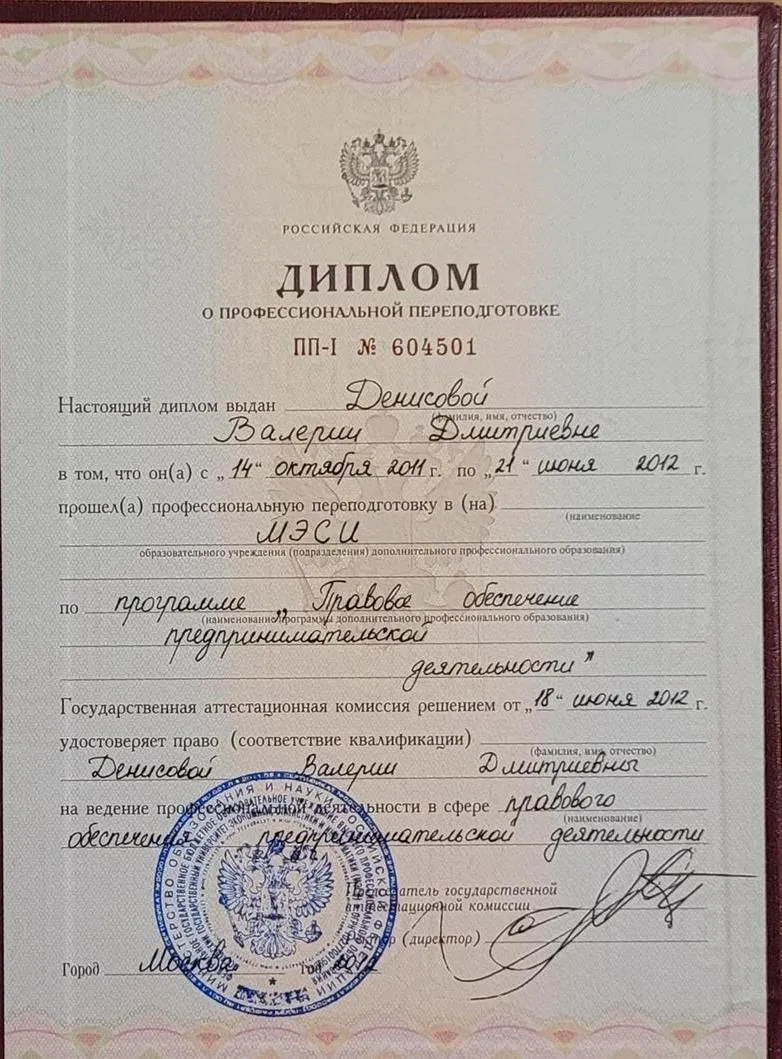 РОССИЙСКАЯ ФЕДЕРАЦИЯ
ДИПЛОМ
О ПРОФЕССИОНАЛЬНОЙ ПЕРЕПОДГОТОВКЕ
ПП-I № 604501
Настоящий диплом выдан Денисовой
(фамилия, имя, отчество)
Валерии Дмитриевне
в том, что он(а) с „14“ октября 2011 г. по „21“ июня 2012 г.
прошел(а) профессиональную переподготовку в (на)
(наименование
МЭСИ
образовательного учреждения (подразделения) дополнительного профессионального образования)
по программе „Правовое обеспечение
(наименование программы дополнительного профессионального образования)
предпринимательской
деятельности"
Государственная аттестационная комиссия решением от „18“ июня 2012 г.
удостоверяет право (соответствие квалификации)
(фамилия, имя, отчество)
Денисовой Валерии Дмитриевны
на ведение профессиональной деятельности в сфере правового
(наименование)
обеспечения предпринимательской деятельности
Председатель государственной
аттестационной комиссии
Ректор (директор)
Город Москва год 2012